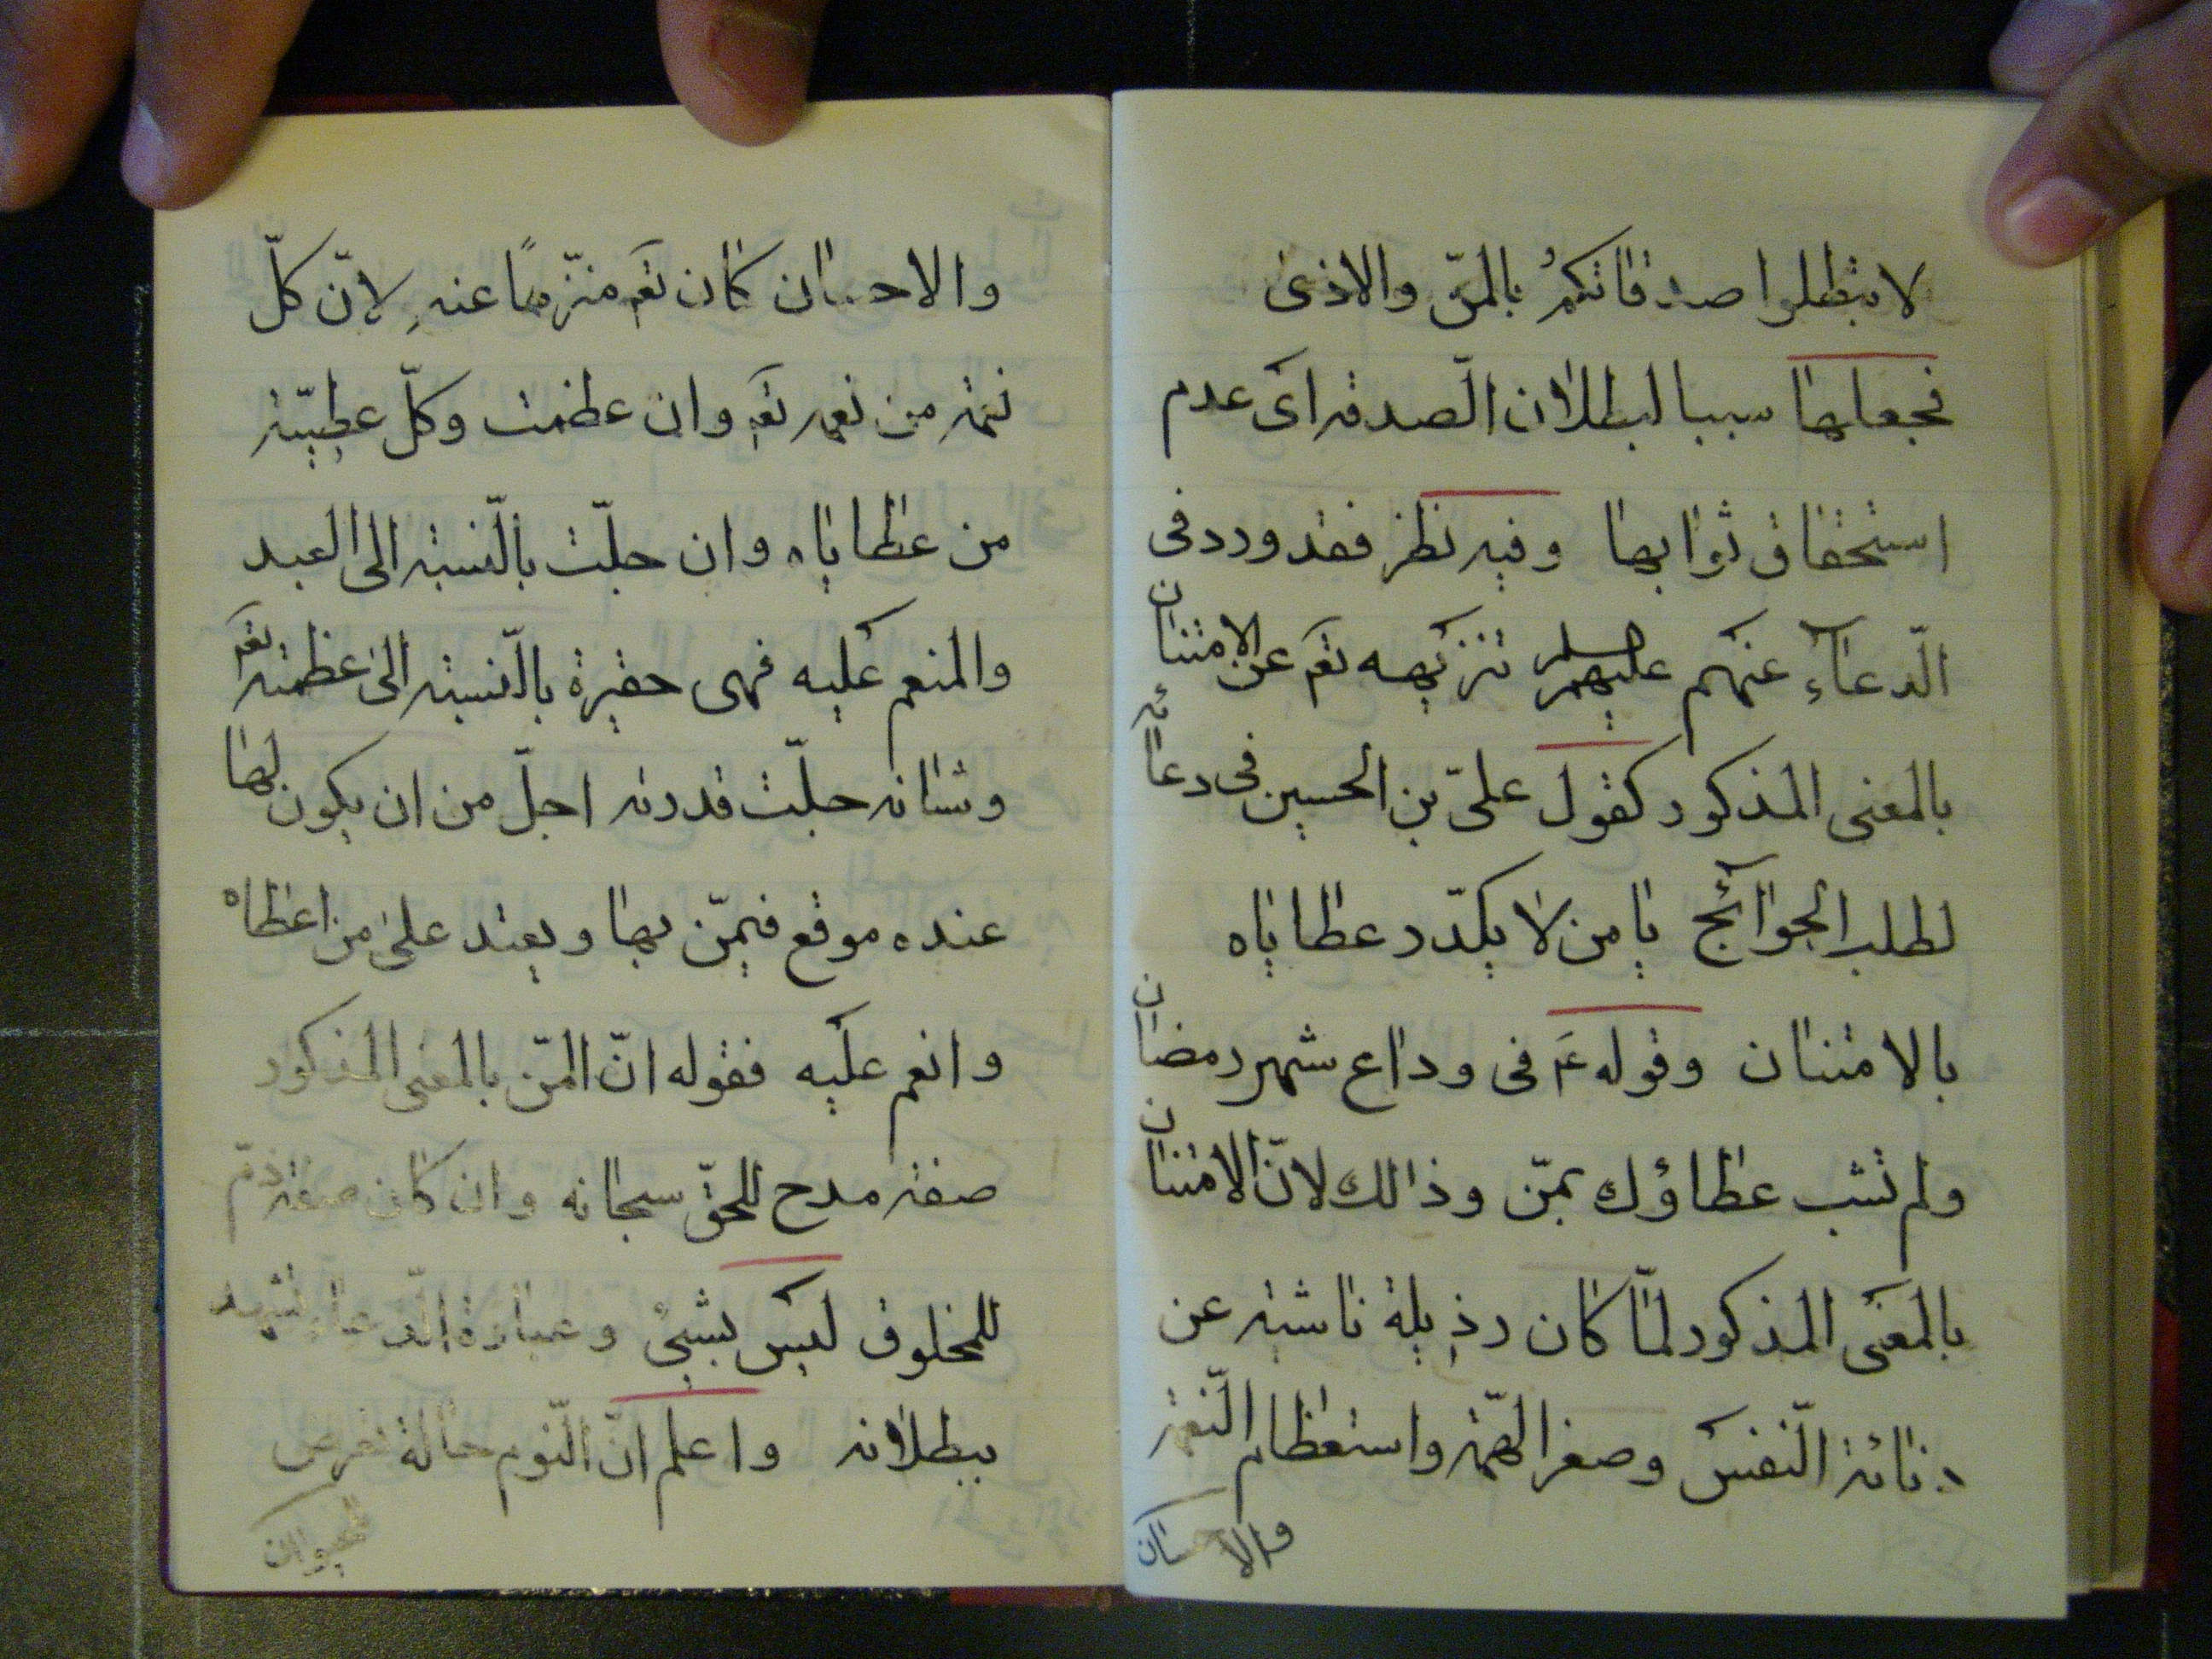 لا تبطلوا صدقاتكم بالمنّ والاذى
فجعلها سببا لبطلان الصّدقة اى عدم
استحقاق ثوابها وفيه نظر فقد ورد فى
الدّعآء عنهم عليهم السلم تنزيهه تعم عن الامتنان
بالمعنى المذكور كقول علىّ بن الحسين فى دعآئه
لطلب الحوآئج يا من لا يكدّر عطاياه
بالامتنان وقوله ع فى وداع شهر رمضان
ولم تشب عطاؤك بمنّ وذالك لانّ الامتنان
بالمعنى المذكور لمّا كان رذيلة ناشئة عن
دنائة النّفس وصغر الهمّة واستعظام النّعمة
والاحسان
والاحسان كان تعم منزّهًا عنه لانّ كلّ
نعمة من نعمه تعم وان عظمت وكلّ عطيّة
من عطاياه وان جلّت بالنّسبة الى العبد
والمنعم عليه فهى حقيرة بالنّسبة الى عظمته تعم
وشانه جلّت قدرته اجلّ من ان يكون لها
عنده موقع فيمنّ بها ويعتد على من اعطاه
وانعم عليه فقوله انّ المنّ بالمعنى المذكور
صفة مدح للحقّ سبحانه وان كان صفة ذمّ
للمخلوق ليس بشىء وعبارة الدّعاء تشهد
ببطلانه واعلم انّ النّوم حالة تعرض
للحيوان